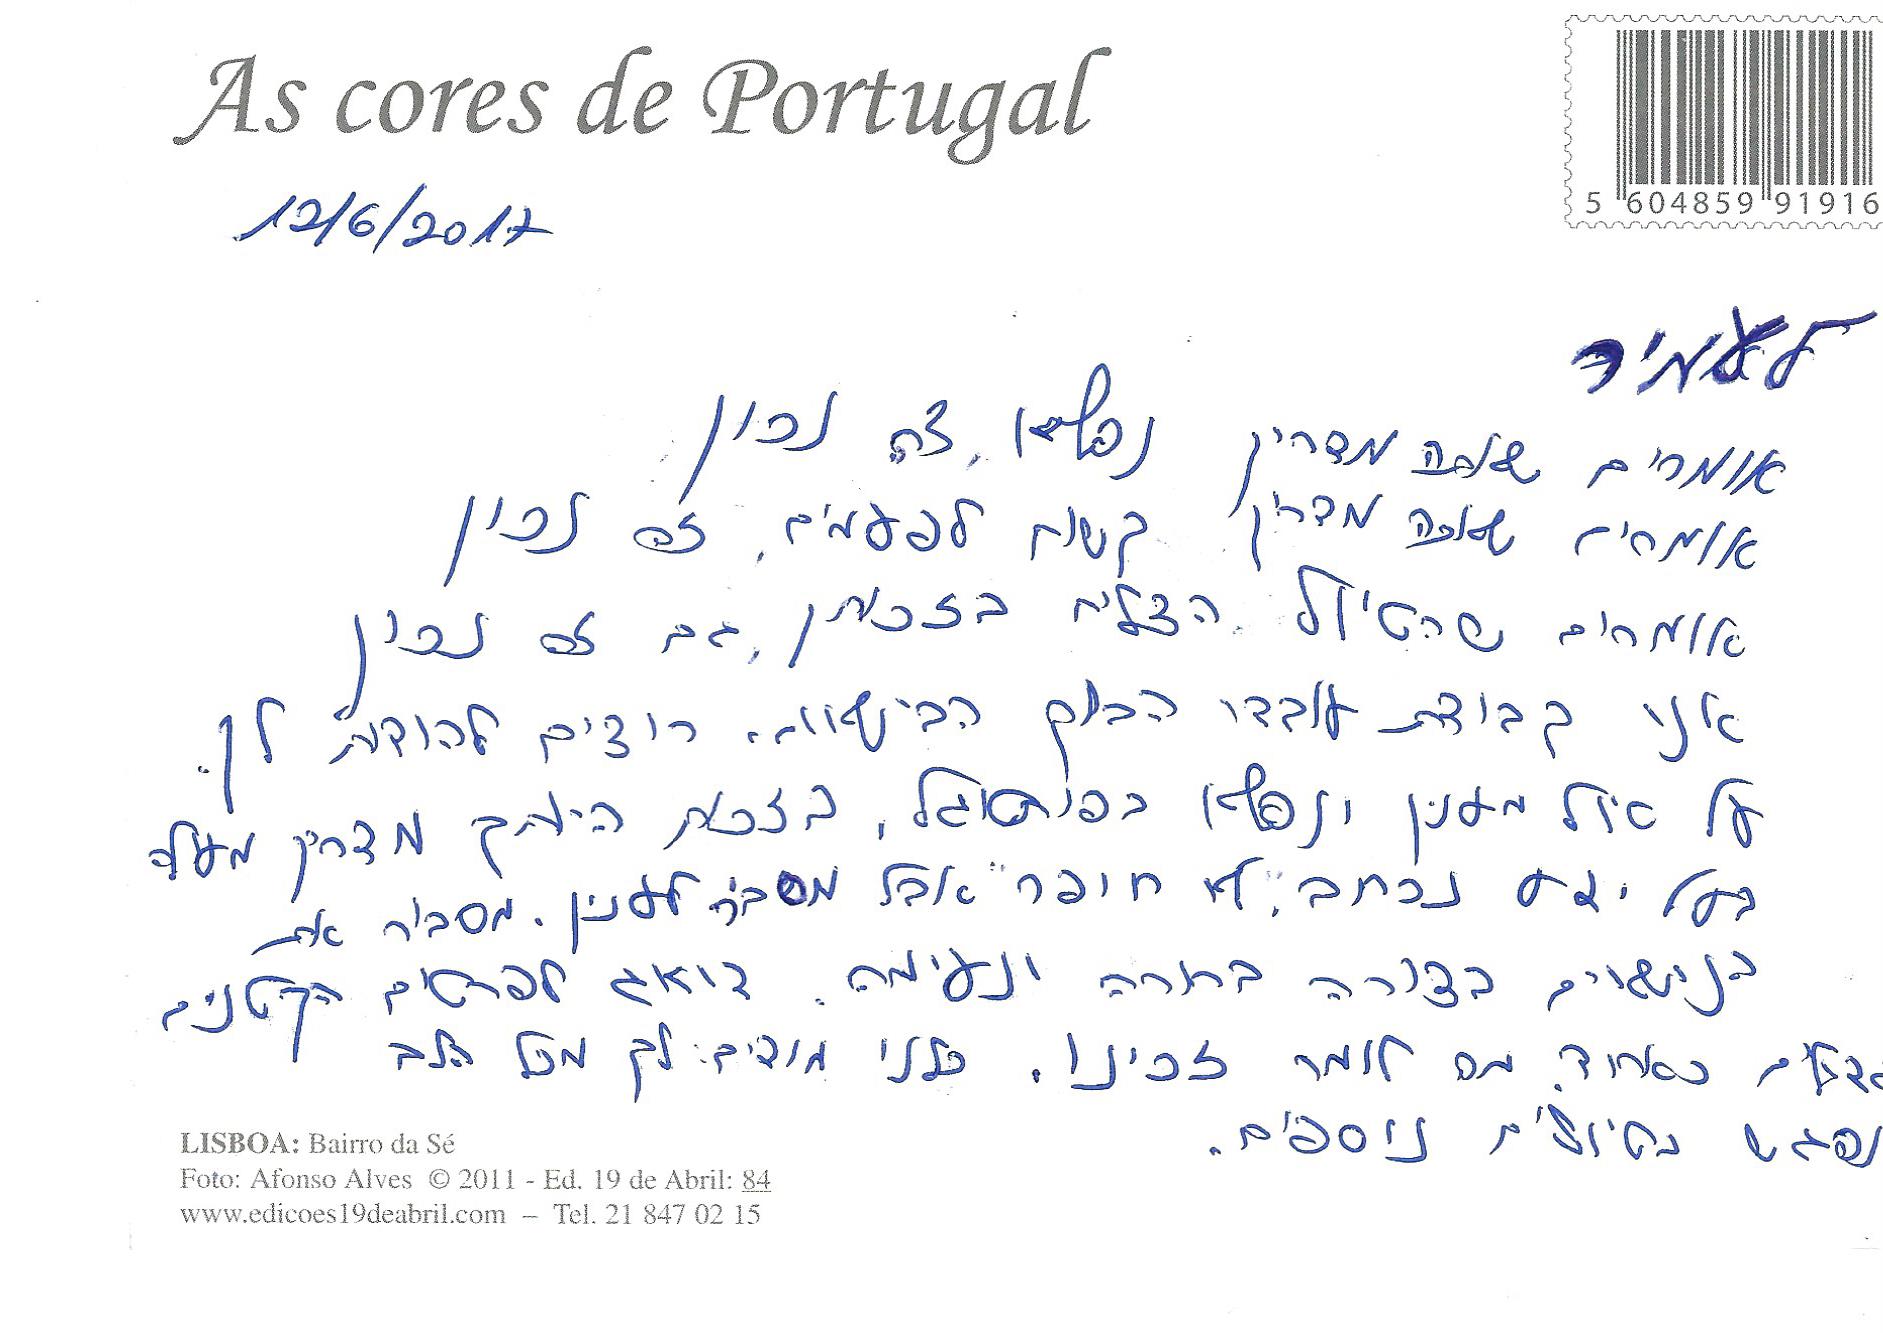 As cores de Portugal
12/6/2017
5 604859 91916
לעמיר
אומרים שאתה מדריך נפלא, זה נכון
אומרים שאתה מדריך קשוח לפעמים, זה נכון
אומרים שהטיול הצליח בזכותך, גם זה נכון
אנו קבוצת עובדי הבנק רוצים להודות לך.
על טיול מעניין ונפלא בפורטוגל, בזכות היותך מדריך מעולה
בעל ידע נרחב, "לא חופר" אבל מסביר לעניין. מסביר את
בצורה ברורה ונעימה. דואג לפרטים הקטנים
מה לומר זכינו. כולנו מודים לך מכל הלב
נפגש בטיולים נוספים.
LISBOA: Bairro da Sé
Foto: Afonso Alves © 2011 - Ed. 19 de Abril: 84
www.edicoes19deabril.com – Tel. 21 847 02 15